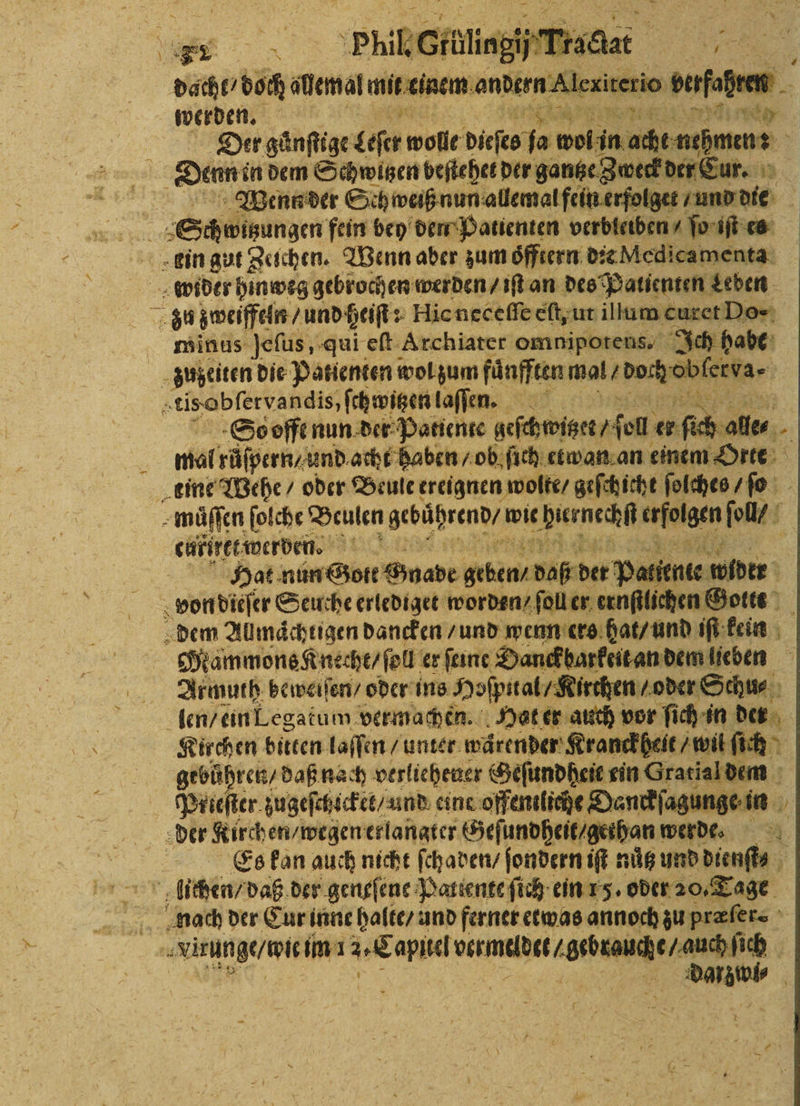 52 Phil. Grülingij Tractat
dacht/ doch allemal mit einem andern Alexiterio verfahren
werden.
Der günstige Leser wolle dieses ja wol in acht nehmen:
Denn in dem Schwitzen bestehet der gantze Zweck der Cur.
Wenn der Schweiß nun allemal fein erfolget / und die
Schwitzungen fein bey dem Patienten verbleiben / so ist es
ein gut Zeichen. Wenn aber zum öfftern die Medicamenta
wider hinweg gebrochen werden / ist an des Patienten Leben
zu zweiffeln / und heist: Hic necesse est, ut illum curet Do-
minus Jesus, qui est Archiater omnipotens. Ich habe
zuzeiten die Patienten wol zum fünfften mal / doch observa-
tis observandis, schwitzen lassen.
So offt nun der Patiente geschwitzet / soll er sich alle-
mal räuspern/ und acht haben / ob sich etwan an einem Orte
eine Wehe / oder Beule ereignen wolte/ geschicht solches / so
müssen solche Beulen gebührend/ wie hiernechst erfolgen soll/
curiret werden.
Hat nun Gott Gnade geben/ daß der Patiente wider
von dieser Seuche erlediget worden/ soll er ernstlichen Gotte
dem Allmächtigen dancken / und wenn ers hat/ und ist kein
Mammons Knecht/ soll er seine Danckbarkeit an dem lieben
Armuth beweisen/ oder ins Hospital / Kirchen / oder Schu-
len/ ein Legatum vermachen. Hat er auch vor sich in der
Kirchen bitten lassen / unter wärender Kranckheit / wil sich
gebühren/ daß nach verliehener Gesundheit ein Gratial dem
Priester zugeschicket/ und eine offentliche Dancksagunge in
der Kirchen/ wegen erlangter Gesundheit/ gethan werde.
Es kan auch nicht schaden/ sondern ist nütz und dienst-
lichen/ daß der genesene Patiente sich ein 15. oder 20. Tage
nach der Cur inne halte/ und ferner etwas annoch zu præser-
virunge/ wie im 12. Capitel vermeldet / gebrauche / auch sich
darzwi-